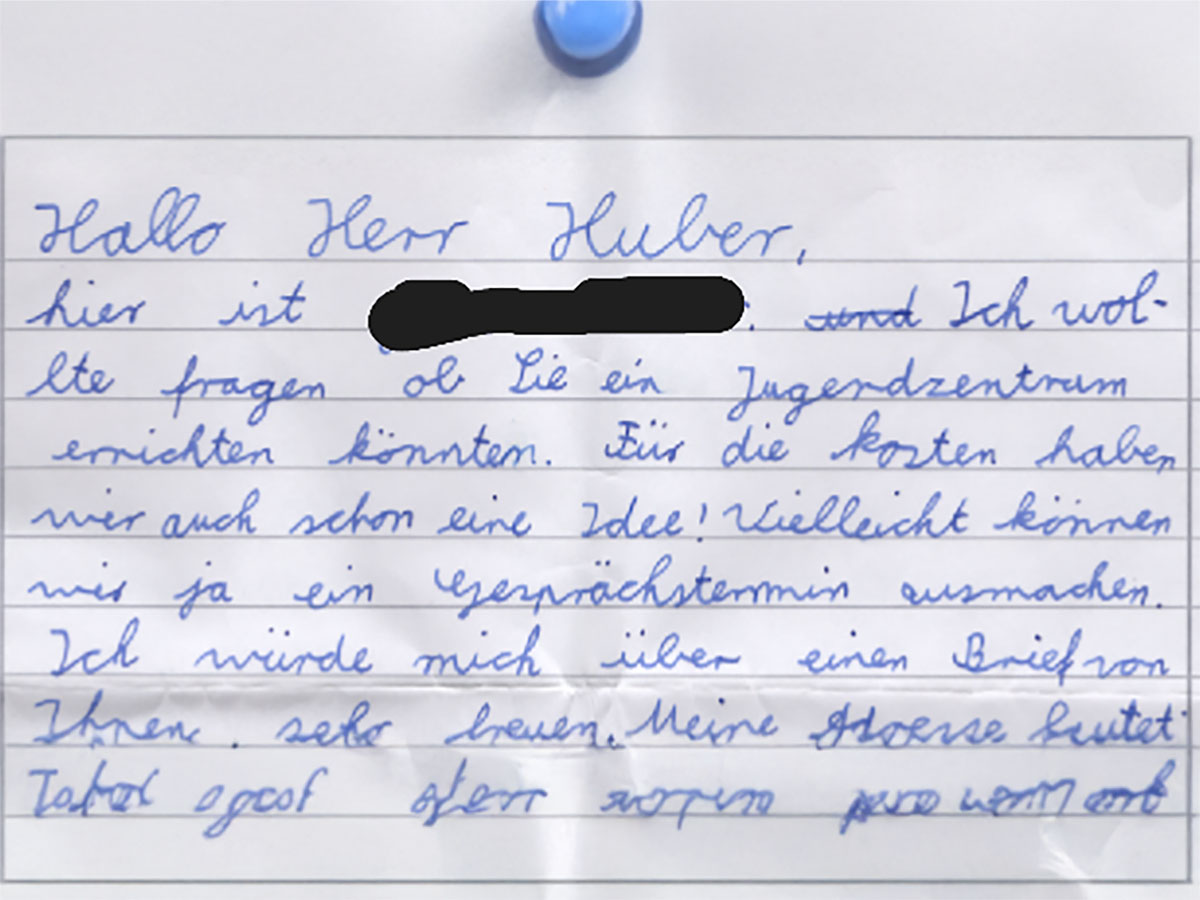 Hallo Herr Huber,
hier ist : und Ich wol-
lte fragen ob Sie ein Jugendzentrum
errichten könnten. Für die kosten haben
wir auch schon eine Idee! Vielleicht können
wir ja ein Gesprächstermin ausmachen.
Ich würde mich über einen Brief von
Ihnen sehr freuen. Meine Adresse lautet